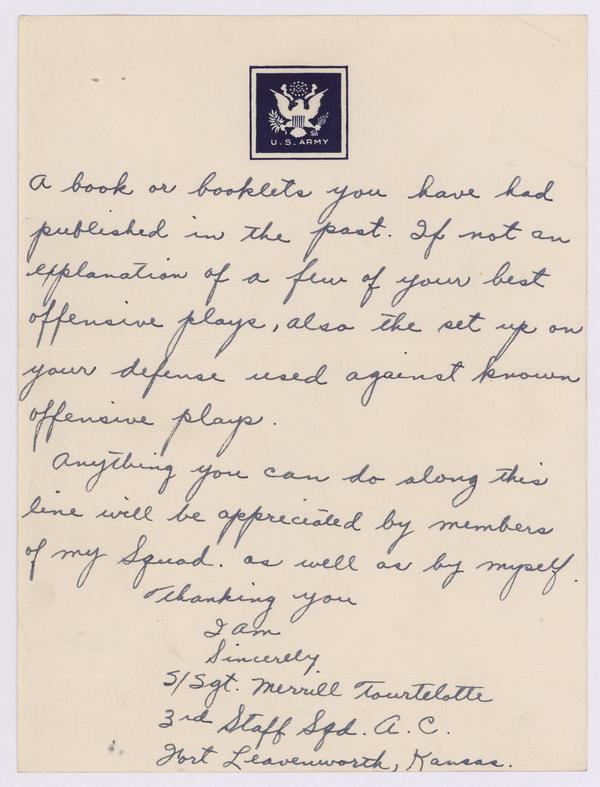 U.S. ARMY
A book or booklets you have had
published in the past. If not an
explanation of a few of your best
offensive plays, also the set up on
your defense used against known
offensive plays.
Anything you can do along this
line will be appreciated by members
of my Squad. as well as by myself.
Thanking you
I am
Sincerely
S/Sgt. Merrill Tourtelotte
3rd Staff Sqd. A.C.
Fort Leavenworth, Kansas.